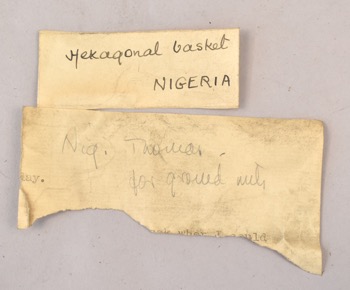 Hexagonal basket
NIGERIA
Nig. Thomas.
for ground nuts
ey.
what I could